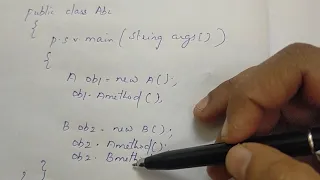 public class Abc
{
p.s.v.main(String args[])
{
A ob1 = new A();
ob1. Amethod();
B ob2 = new B();
ob2. Amethod();
ob2. Bmeth
} }